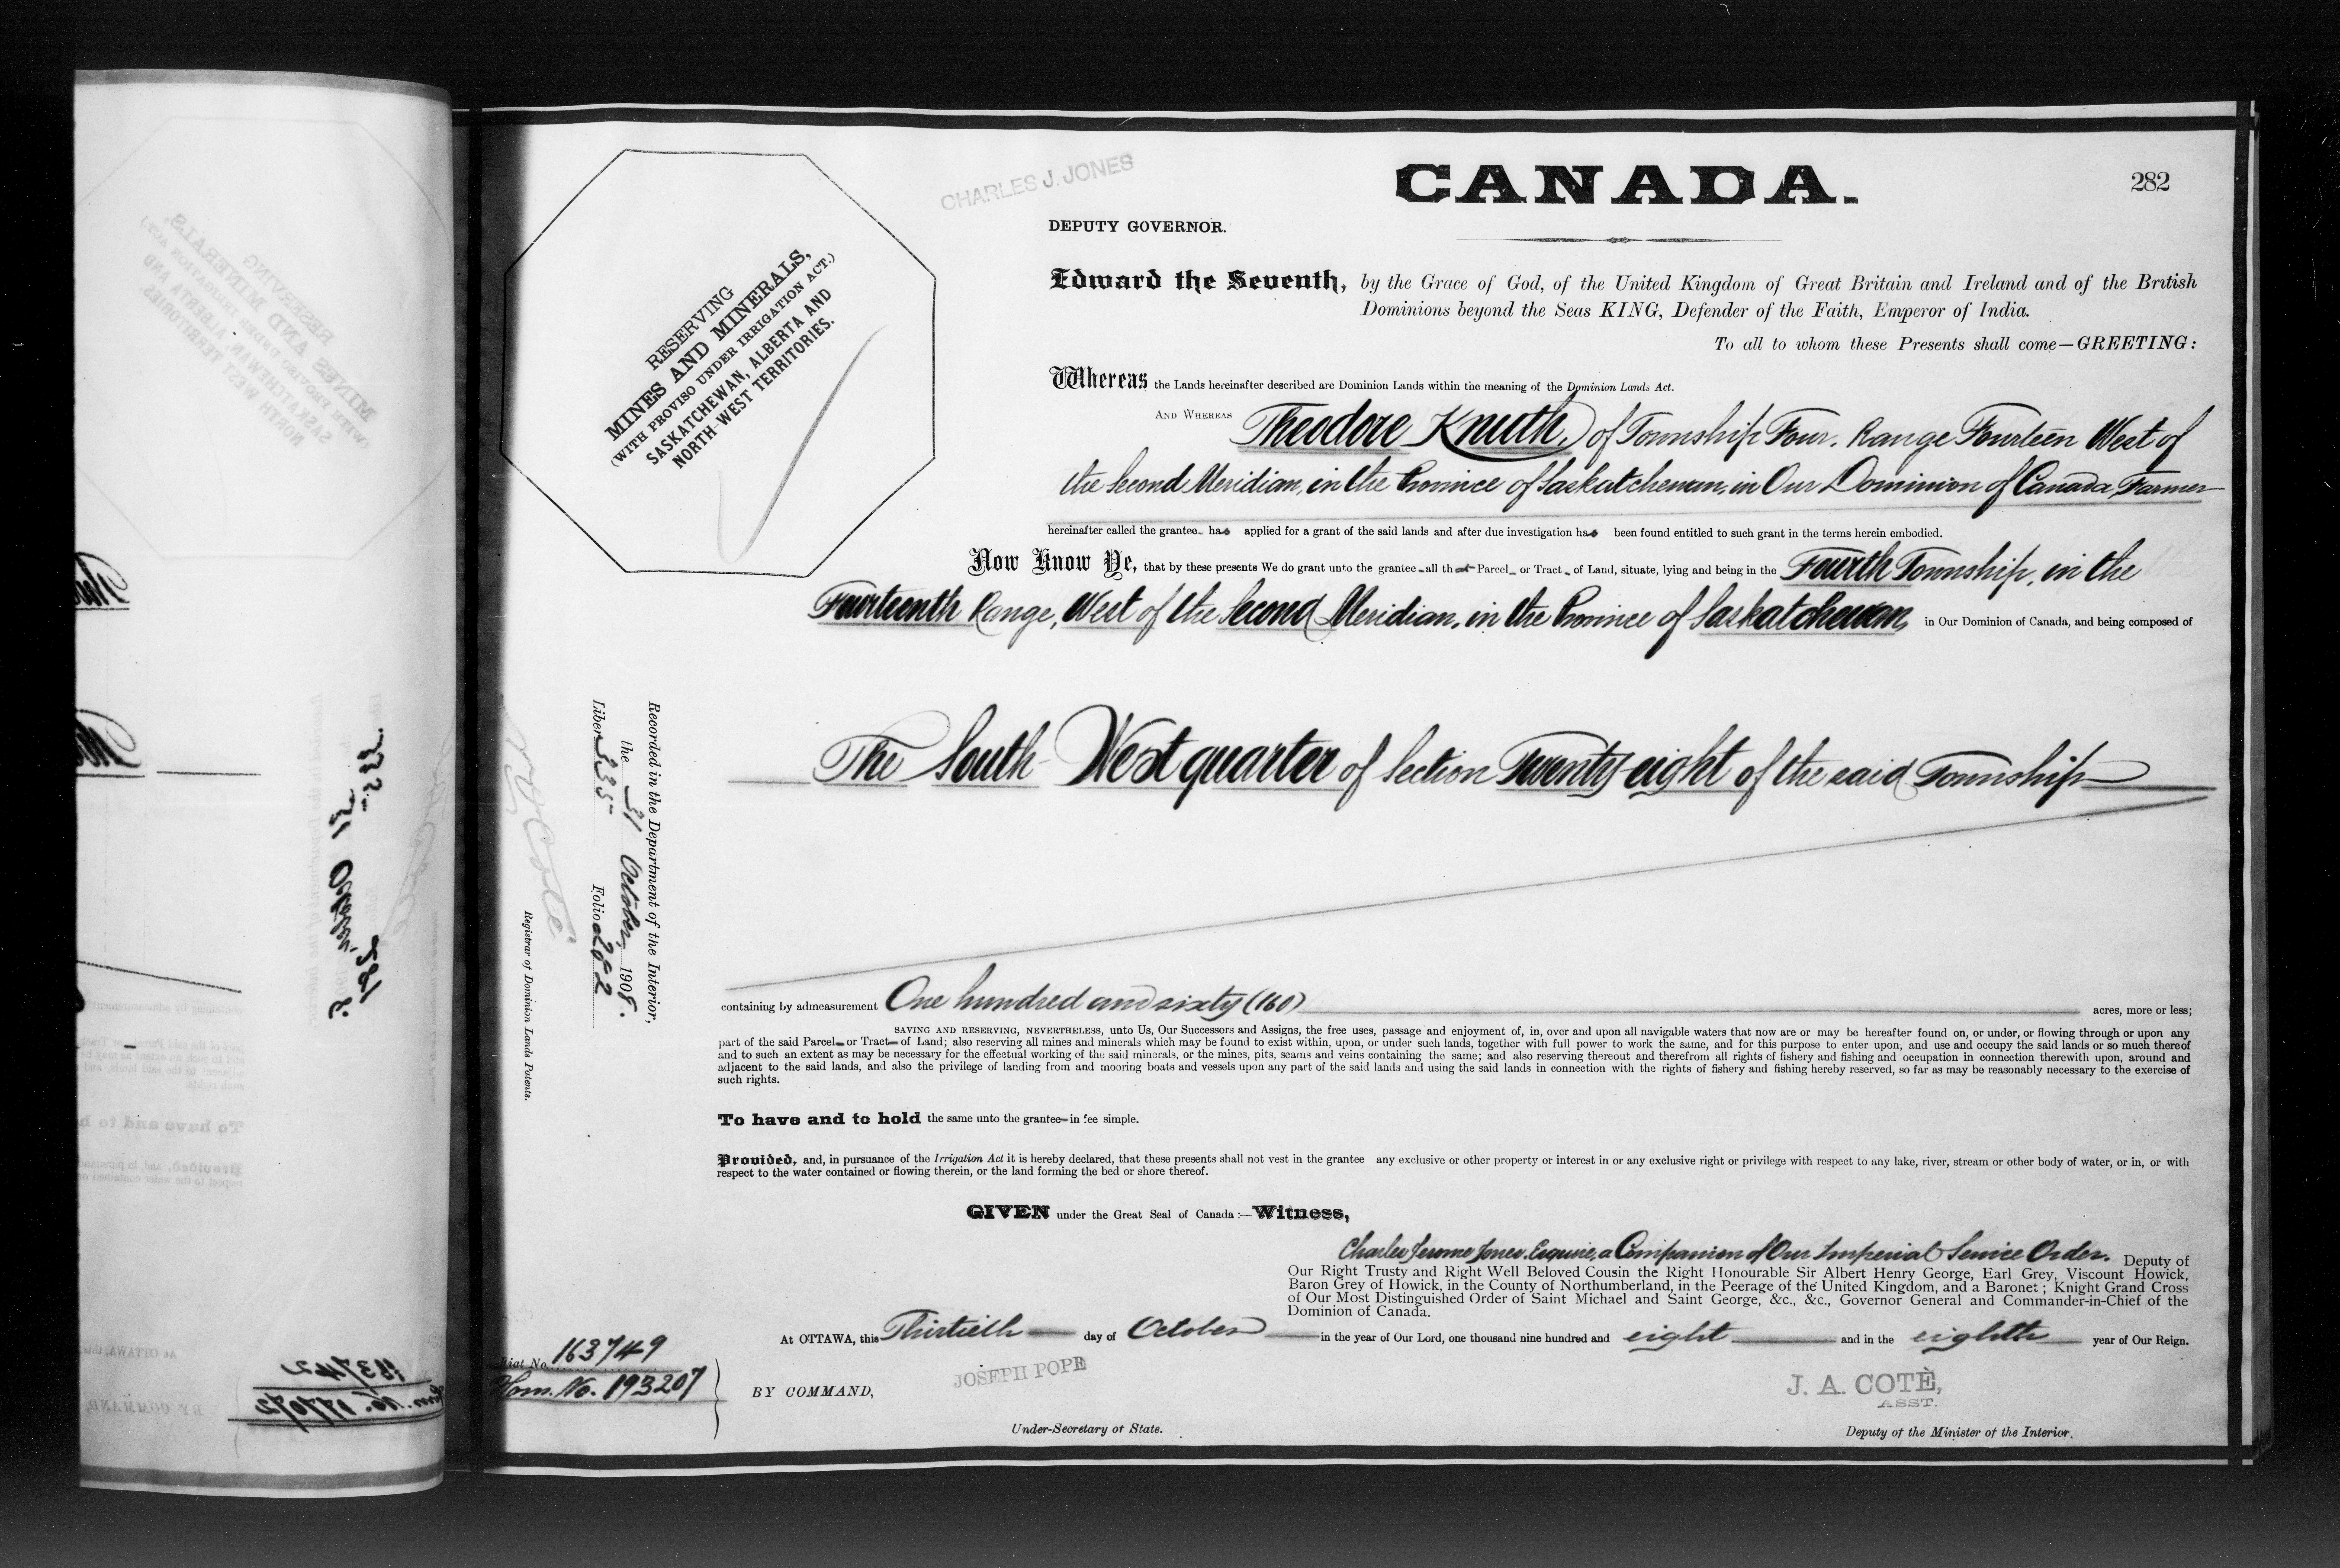 CHARLES J. JONES
CANADA.
282
DEPUTY GOVERNOR.
RESERVING
MINES AND MINERALS,
(WITH PROVISO UNDER IRRIGATION ACT.)
SASKATCHEWAN, ALBERTA AND
NORTH-WEST TERRITORIES.
Edward the Seventh, by the Grace of God, of the United Kingdom of Great Britain and Ireland and of the British
Dominions beyond the Seas KING, Defender of the Faith, Emperor of India.
To all to whom these Presents shall come—GREETING:
Whereas the Lands hereinafter described are Dominion Lands within the meaning of the Dominion Lands Act.
AND WHEREAS Theodore Knuth, of Township Four, Range Fourteen West of
the Second Meridian, in the Province of Saskatchewan, in Our Dominion of Canada, Farmer
hereinafter called the grantee has applied for a grant of the said lands and after due investigation has been found entitled to such grant in the terms herein embodied.
Now Know Ye, that by these presents We do grant unto the grantee all that Parcel or Tract of Land, situate, lying and being in the Fourth Township, in the
Fourteenth Range, West of the Second Meridian, in the Province of Saskatchewan, in Our Dominion of Canada, and being composed of
The South West quarter of Section Twenty-eight of the said Township
Recorded in the Department of the Interior,
the 31 October, 1908.
Liber 335 Folio 282
N O Coté
Registrar of Dominion Lands Patents.
containing by admeasurement One hundred and sixty (160) acres, more or less;
SAVING AND RESERVING, NEVERTHELESS, unto Us, Our Successors and Assigns, the free uses, passage and enjoyment of, in, over and upon all navigable waters that now are or may be hereafter found on, or under, or flowing through or upon any
part of the said Parcel or Tract of Land; also reserving all mines and minerals which may be found to exist within, upon, or under such lands, together with full power to work the same, and for this purpose to enter upon, and use and occupy the said lands or so much thereof
and to such an extent as may be necessary for the effectual working of the said minerals, or the mines, pits, seams and veins containing the same; and also reserving thereout and therefrom all rights of fishery and fishing and occupation in connection therewith upon, around and
adjacent to the said lands, and also the privilege of landing from and mooring boats and vessels upon any part of the said lands and using the said lands in connection with the rights of fishery and fishing hereby reserved, so far as may be reasonably necessary to the exercise of
such rights.
To have and to hold the same unto the grantee in fee simple.
Provided, and, in pursuance of the Irrigation Act it is hereby declared, that these presents shall not vest in the grantee any exclusive or other property or interest in or any exclusive right or privilege with respect to any lake, river, stream or other body of water, or in, or with
respect to the water contained or flowing therein, or the land forming the bed or shore thereof.
GIVEN under the Great Seal of Canada:—Witness,
Charles Jerome Jones, Esquire, a Companion of Our Imperial Service Order. Deputy of
Our Right Trusty and Right Well Beloved Cousin the Right Honourable Sir Albert Henry George, Earl Grey, Viscount Howick,
Baron Grey of Howick, in the County of Northumberland, in the Peerage of the United Kingdom, and a Baronet; Knight Grand Cross
of Our Most Distinguished Order of Saint Michael and Saint George, &c., &c., Governor General and Commander-in-Chief of the
Dominion of Canada.
At OTTAWA, this Thirtieth day of October in the year of Our Lord, one thousand nine hundred and eight and in the eighth year of Our Reign.
Fiat No. 163749
Hom. No. 193207
BY COMMAND,
JOSEPH POPE
Under-Secretary of State.
J. A. COTÈ,
ASST.
Deputy of the Minister of the Interior.